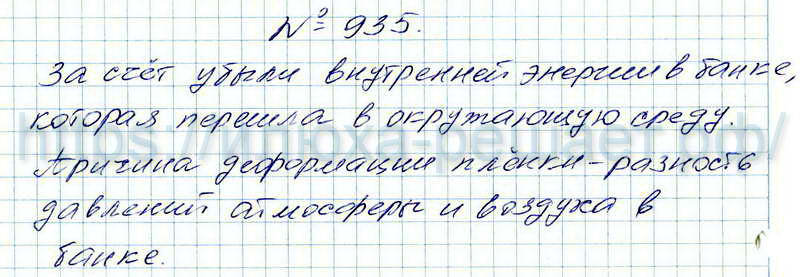 № 935.
За счёт убыли внутренней энергии в банке,
которая перешла в окружающую среду.
Причина деформации плёнки - разность
давлений атмосферы и воздуха в
банке.